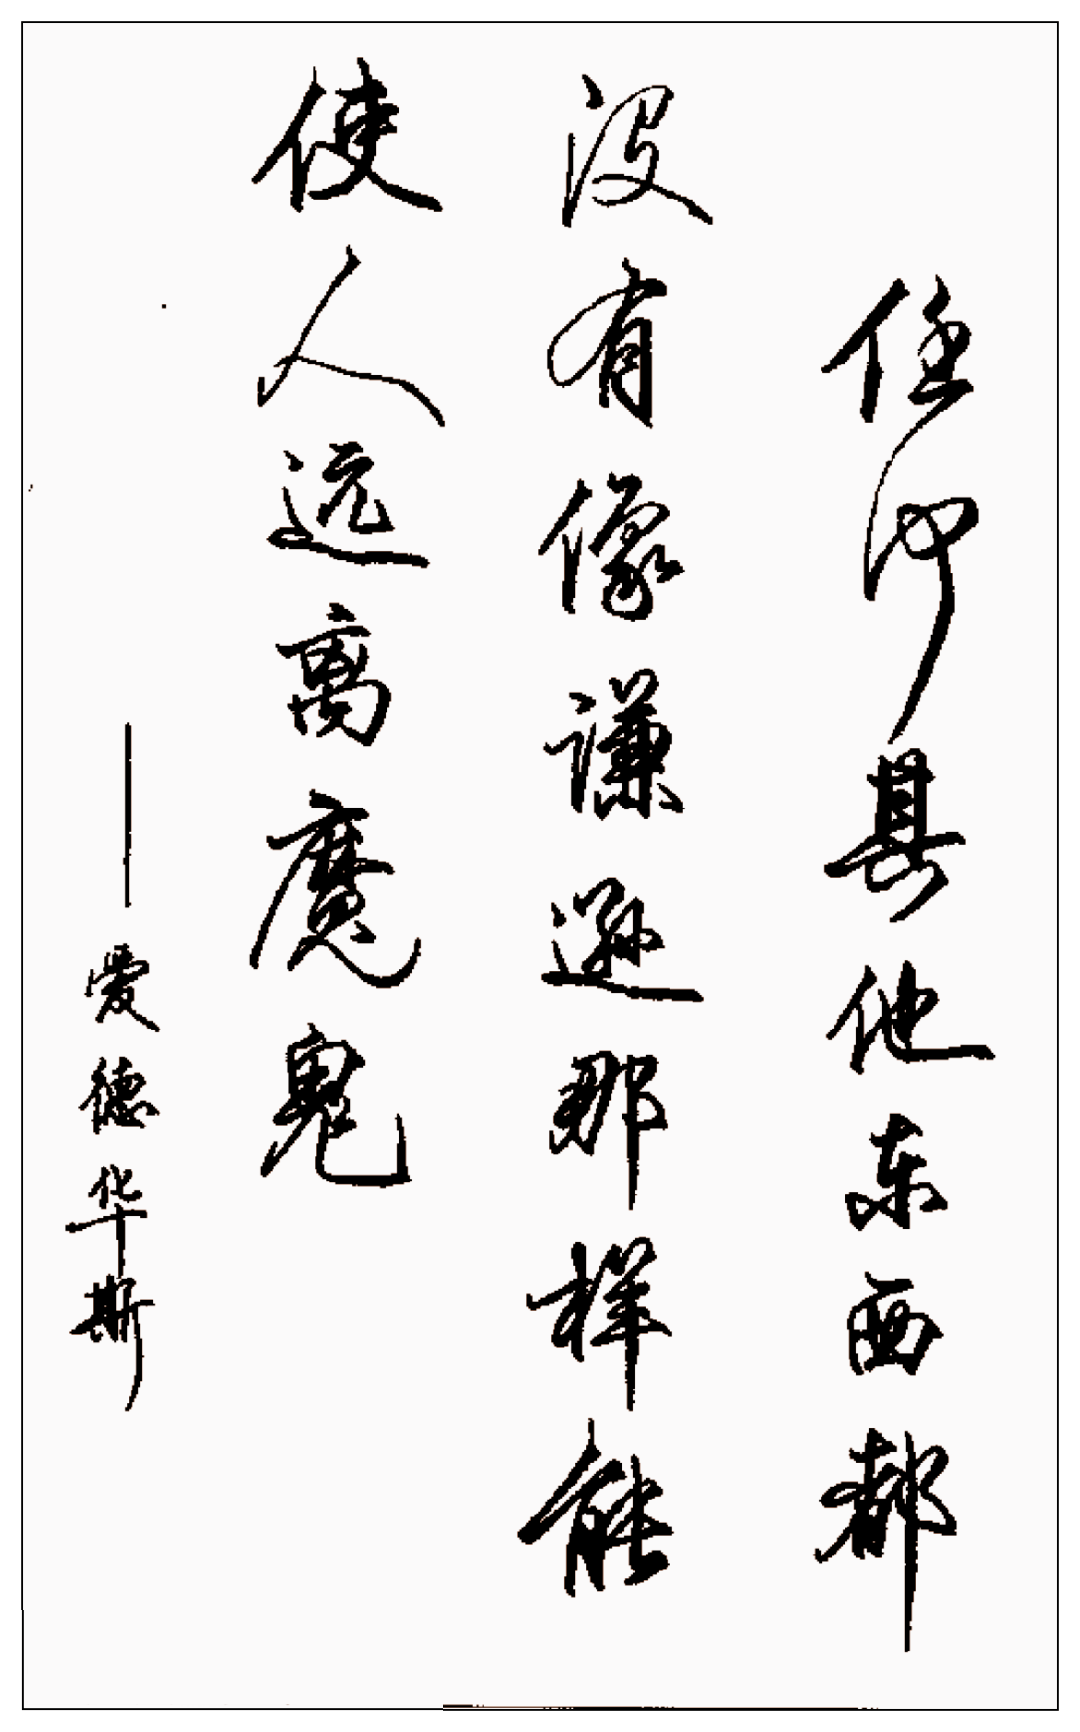 任何其他东西都
没有像谦逊那样能
使人远离魔鬼
——爱德华斯